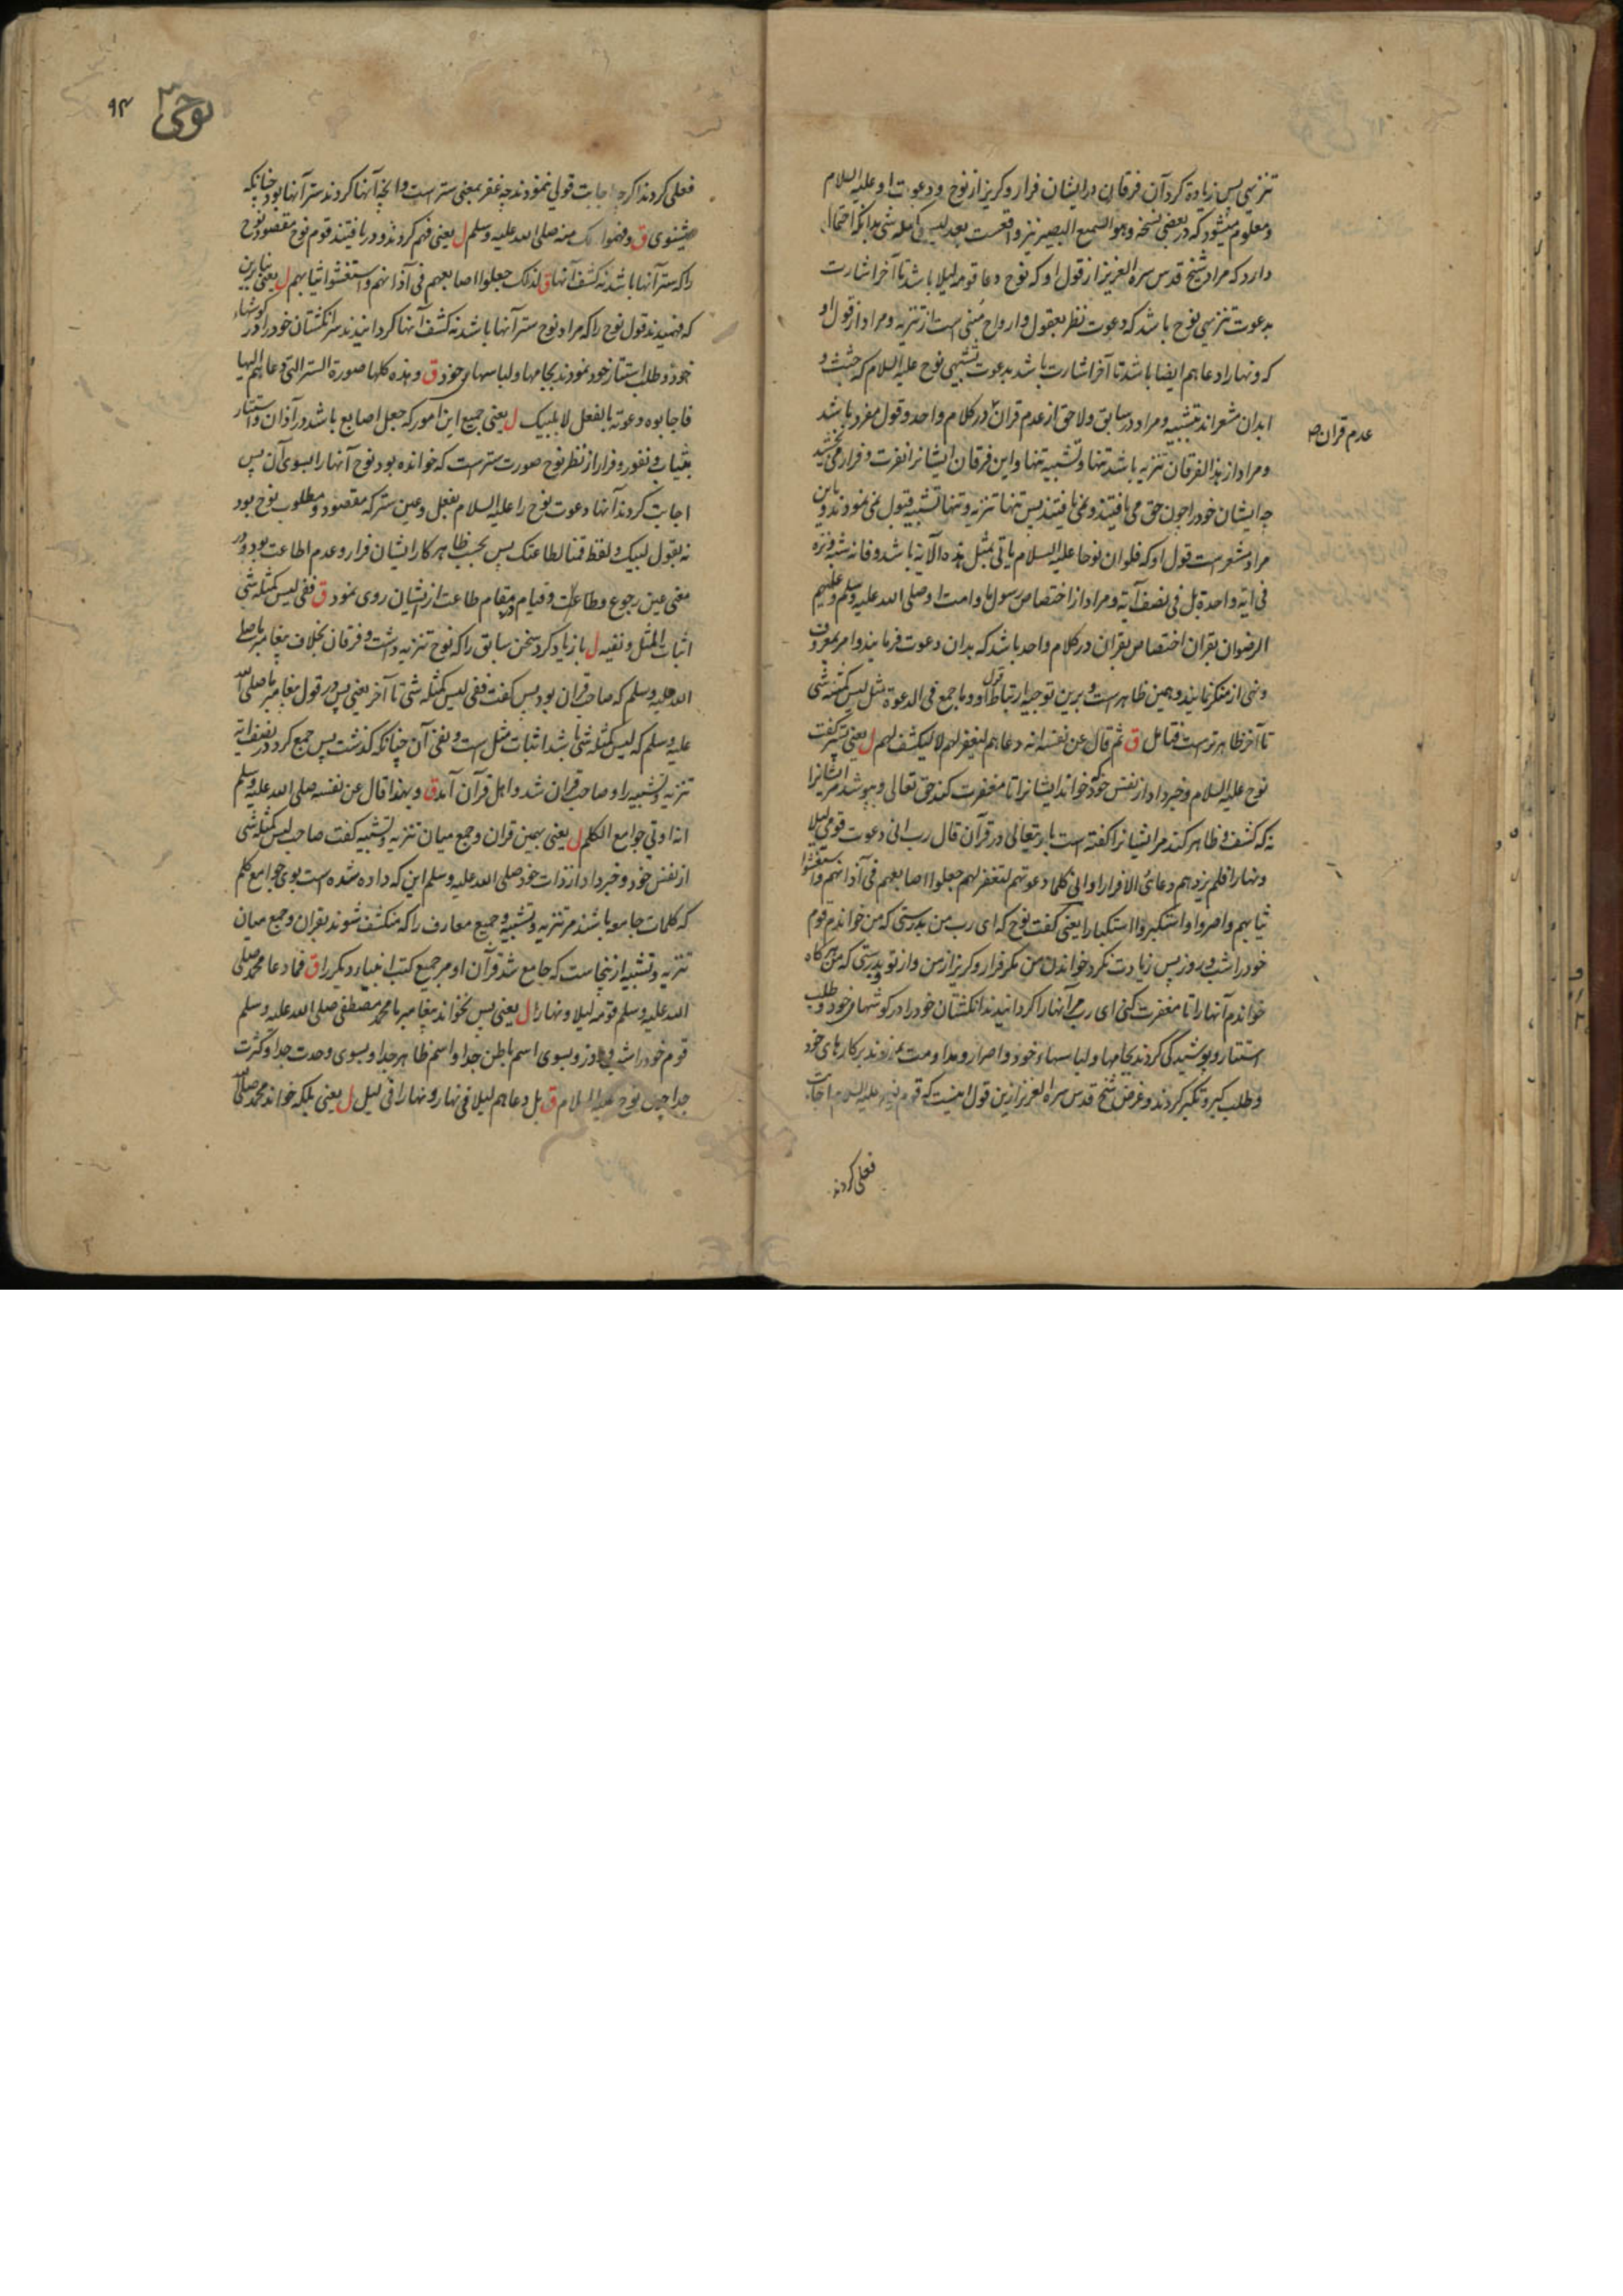 تنزیهی پس زیاده کرد آن فرقان در ایشان فرار و کریز از نوح و دعوت او علیه السلام
و معلوم میشود که در بعضی نسخه و هو السمیع البصیر نیز واقعست بعد لیس کمثله شی بدانکه احتمال
دارد که مراد شیخ قدس سره العزیز از قول او که نوح دعا قومه لیلا باشد تا آخر اشارت
بدعوت تنزیهی نوح باشد که دعوت نظر بعقول و ارواح مبنی است از تنزیه و مراد از قول او
که و نهارا دعاهم ایضا باشد تا آخر اشارت باشد بدعوت تشبیهی نوح علیه السلام که جثث و
ابدان مشعراند بتشبیه و مراد در سابق و لاحق از عدم قران در کلام واحد و قول مفرد باشد
عدم قران صح
و مراد از بذا الفرقان تنزیه باشد تنها و تشبیه تنها و این فرقان ایشانرا نفرت و فرار می بخشید
چه ایشان خود را چون حق می یافتند و نمی یافتند پس تنها تنزیه و تنها تشبیه قبول نمی نمودند و باین
مراد مشعر است قول او که فلو ان نوحا علیه السلام یاتی بمثل هذه الآیة باشد و فانه شبه و نزه
فی ایة واحدة بل فی نصف آیة و مراد از اختصاص رسول ما و امت او صلی الله علیه وسلم و علیهم
الرضوان بقران اختصاص بقران در کلام واحد باشد که بدان دعوت فرمایند و امر بمعروف
و نهی از منکر نمایند و همین ظاهر است و برین توجیه ارتباط قول او و ما جمع فی الدعوة مثل لیس کمثله شی
تا آخر ظاهرتر است فتامل ق ثم قال عن نفسه انه دعاهم لیغفر لهم لا لیکشف لهم ل یعنی پستر کفت
نوح علیه السلام و خبر داد از نفس خود که خواند ایشانرا تا مغفرت کند حق تعالی و بپوشد مر ایشانرا
نه که کشف و ظاهر کند مر ایشانرا کفته است باریتعالی در قرآن قال رب انی دعوت قومی لیلا
و نهارا فلم یزدهم دعائی الا فرارا و انی کلما دعوتهم لتغفر لهم جعلوا اصابعهم فی آذانهم و استغشوا
ثیابهم و اصروا و استکبروا استکبارا یعنی کفت نوح که ای رب من بدرستی که من خواندم قوم
خود را شب و روز پس زیادت نکرد خواندن من مکر فرار و کریز از من و از تو و بدرستی که من هرکاه
خواندم آنها را تا مغفرت کنی ای رب مر آنها را کردانیدند انکشتان خود را در کوشهای خود و طلب
استتار و پوشیدگی کردند بجامها و لباسهاء خود و اصرار و مداومت نمودند بر کارهای خود
و طلب کبر و تکبر کردند و غرض شیخ قدس سره العزیز ازین قول اینست که قوم نوح علیه السلام اجابت
فعلی کردند
نوحی
۹۳
فعلی کردند اکرچه اجابت قولی ننمودند چه غفر بمعنی ستر است و آنچه آنها کردند ستر آنها بود چنانکه
میشنوی ق و فهموا ذلک منه صلی الله علیه وسلم ل یعنی فهم کردند و دریافتند قوم نوح مقصود نوح
را که ستر آنها باشد نه کشف آنها ق لذلک جعلوا اصابعهم فی آذانهم و استغشوا ثیابهم ل یعنی بنابرین
که فهمیدند قول نوح را که مراد نوح ستر آنها باشد نه کشف آنها کردانیدند سر انکشتان خود را در کوشهاء
خود و طلب استتار خود نمودند بجامها و لباسهای خود ق و هذه کلها صورة الستر التی دعاهم الیها
فاجابوه دعوته بالفعل لا بلبیک ل یعنی جمیع این امور که جعل اصابع باشد در آذان و استتار
بثیاب و نفور و فرار از نظر نوح صورت ستر است که خوانده بود نوح آنها را بسوی آن پس
اجابت کردند آنها دعوت نوح را علیه السلام بفعل و عین ستر که مقصود و مطلوب نوح بود
نه بقول لبیک و لفظ قمنا لطاعتک پس بحسب ظاهر کار ایشان فرار و عدم اطاعت بود و در
معنی عین رجوع و طاعت و قیام در مقام طاعت از ایشان روی نمود ق ففی لیس کمثله شی
اثبات المثل و نفیه ل باز یاد کرد سخن سابق را که نوح تنزیه داشت و فرقان بخلاف پیغامبر ما صلی
الله علیه وسلم که صاحب قران بود پس کفت ففی لیس کمثله شی تا آخر یعنی پس در قول پیغامبر ما صلی الله
علیه وسلم که لیس کمثله شی باشد اثبات مثل است و نفی آن چنانکه کذشت پس جمع کرد در نصف آیة
تنزیه و تشبیه را و صاحب قران شد و اهل قرآن آمد ق و بهذا قال عن نفسه صلی الله علیه وسلم
انه اوتی جوامع الکلم ل یعنی بهمین قران و جمع میان تنزیه و تشبیه کفت صاحب لیس کمثله شی
از نفس خود و خبر داد از ذات خود صلی الله علیه وسلم این که داده شده است بوی جوامع کلم
که کلمات جامعه باشند مر تنزیه و تشبیه و جمیع معارف را که منکشف شوند بقران و جمع میان
تنزیه و تشبیه ازینجاست که جامع شد قرآن او مر جمیع کتب انبیاء دیکر را ق فما دعا محمد صلی
الله علیه وسلم قومه لیلا و نهارا ل یعنی پس نخواند پیغامبر ما محمد مصطفی صلی الله علیه وسلم
قوم خود را شب و روز و بسوی اسم باطن جدا و اسم ظاهر جدا و بسوی وحدت جدا و کثرت
جدا چون نوح علیه السلام ق بل دعاهم لیلا فی نهار و نهارا فی لیل ل یعنی بلکه خواند محمد صلی الله